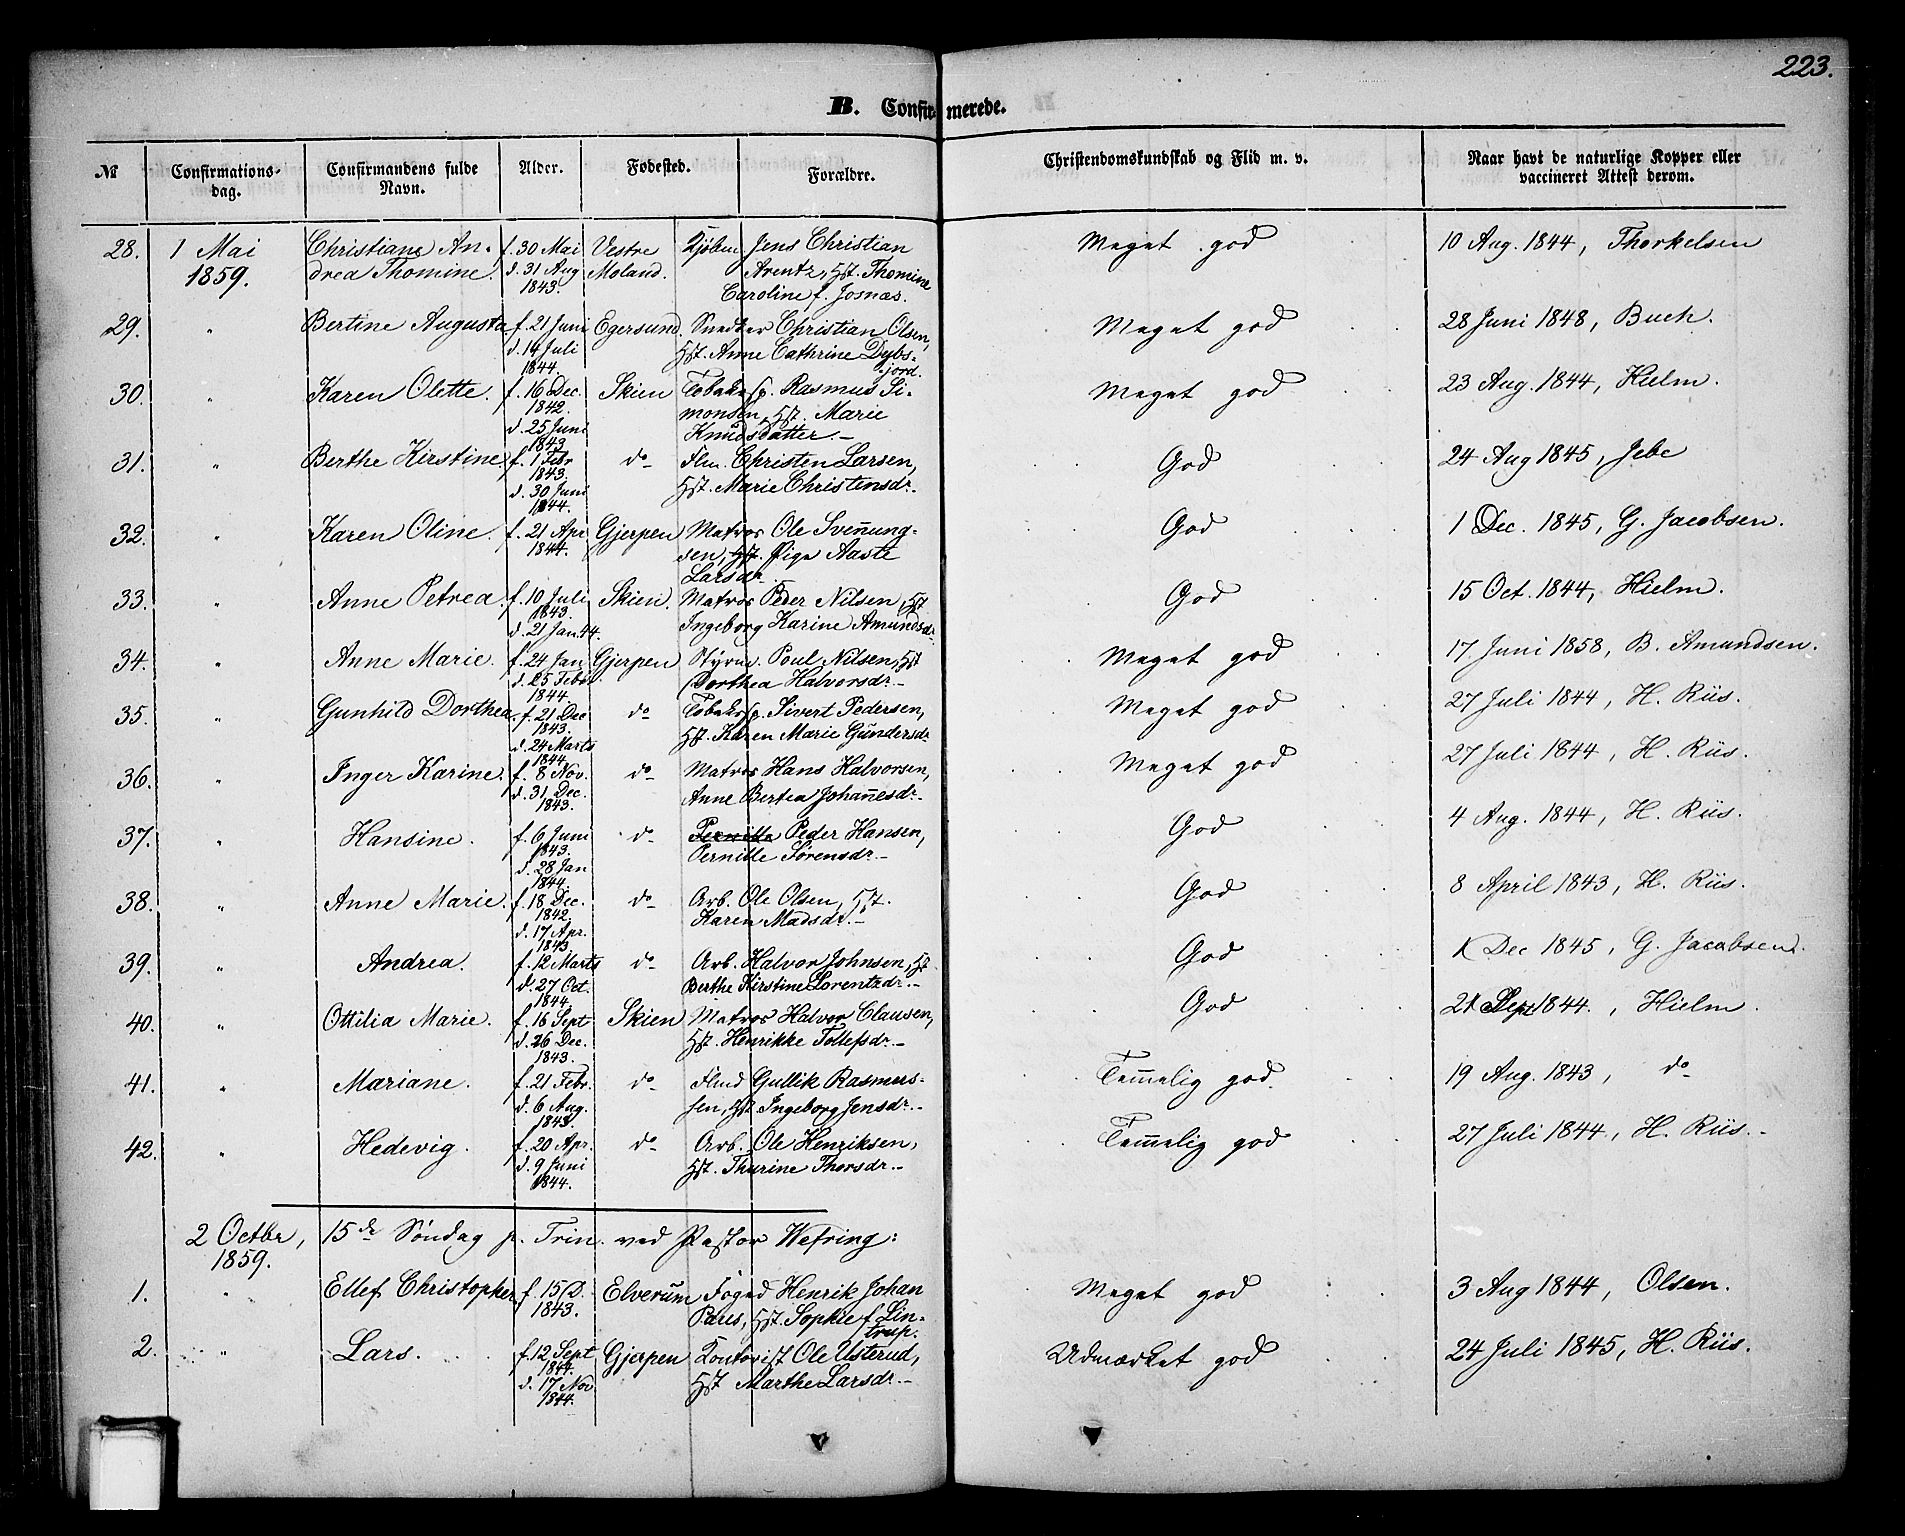 223.
B. Confirmerede.
№ Confirmations-dag. Confirmandens fulde Navn. Alder. Fødested. Forældre. Christendomskundskab og Flid m. v. Naar havt de naturlige Kopper eller vaccineret Attest derom.
28. 1 Mai Christiane An- f. 30 Mai Vestre Jens Christian Meget god 10 Aug. 1844, Thorkelsen
1859. drea Thomine. d. 31 Aug Moland. Arentz, Hst. Thomine
1843. Caroline f. Josnæs.
29. " Bertine Augusta f. 21 Juni Egersund. Snedker Christian Olsen, Meget god 28 Juni 1848, Buch.
d. 14 Juli Hst. Anne Cathrine Dybs-
1844. fjord.
30. " Karen Olette. f. 16 Dec. Skien Tobaksp. Rasmus Si- Meget god 23 Aug. 1844, Hielm.
1842. monsen, Hst. Marie
d. 25 Juni Knudsdatter.-
1843
31. " Berthe Kirstine. f. 1 Febr do- Flm. Christen Larsen, God 24 Aug 1845, Jebe
1843.
d. 30 Juni Hst. Marie Christensdr.
1844.
32. " Karen Oline. f. 21 Apr Gjerpen Matros Ole Svenung- God 1 Dec. 1845, G. Jacobsen.
1844. sen, Hst. Pige Aaste
Larsdr
33. " Anne Petrea. f. 10 Juli Skien. Matros Peder Nilsen, Hst God 15 Oct. 1844, Hielm.
1843.
d. 21 Jan 44. Ingeborg Karine Amundsdr.
34. " Anne Marie. f. 24 Jan Gjerpen Styrm. Poul Nilsen, Hst Meget god 17 Juni 1858, B. Amundsen.
d. 25 Febr Dorthea Halvorsdr.-
1844.
35. " Gunhild Dorthea. f. 21 Dec do Tobaksp. Sivert Pedersen, Meget god 27 Juli 1844, H. Riis.
1843.
d. 24 Marts Hst. Karen Marie Gundersdr
1844.
36. " Inger Karine. f. 8 Nov. do- Matros Hans Halvorsen, Meget god 27 Juli 1844, H. Riis.
d. 31 Dec. Anne Bertea Johanesdr.-
1843.
37. " Hansine. f. 6 Juni do- Pernille Peder Hansen, God 4 Aug. 1844, H. Riis.
1843.
d. 28 Jan Pernille Sørensdr.-
1844.
38. " Anne Marie. f. 18 Dec. do- Arb. Ole Olsen, Hst. God 8 April 1843, H. Riis.
1842.
d. 17 Apr. Karen Madsdr.-
1843.
39. " Andrea. f. 12 Marts do- Arb. Halvor Johnsen, Hst God 1 Dec 1845, G. Jacobsen.
d. 27 Oct. Berthe Kirstine Lorentzdr.-
1844.
40. " Ottilia Marie. f. 16 Sept Skien Matros Halvor Clausen, God 21 Sept 1844. , Hielm.
d. 26 Dec. Hst. Henrikke Tollefsdr.-
1843.
41. " Mariane. f. 21 Febr. do- Flmd Gullik Rasmus- Temelig god. 19 Aug. 1843, do-
d. 6 Aug. sen, Hst Ingeborg Jensdr.-
1843.
42. " Hedevig. f. 20 Apr. do- Arb. Ole Henriksen, Temelig god 27 Juli 1844, H. Riis.-
d. 9 Juni Hst. Thurine Thorsdr.-
1844.
2 Octbr, 15de Søndag p. Trin. ved Pastor Wefring:
1859.
1. " Ellef Christopher f. 15 D. Elverum Foged Henrik Johan Meget god 3 Aug 1844, Olsen.
1843. Paus, Hst. Sophie f. Lin-
trup.
2. " Lars. f. 12 Sept Gjerpen Kontorist Ole Usterud, Udmærket god 24 Juli 1845, H. Riis.
1844.
d. 17 Nov Hst Marthe Larsdr.-
1844.